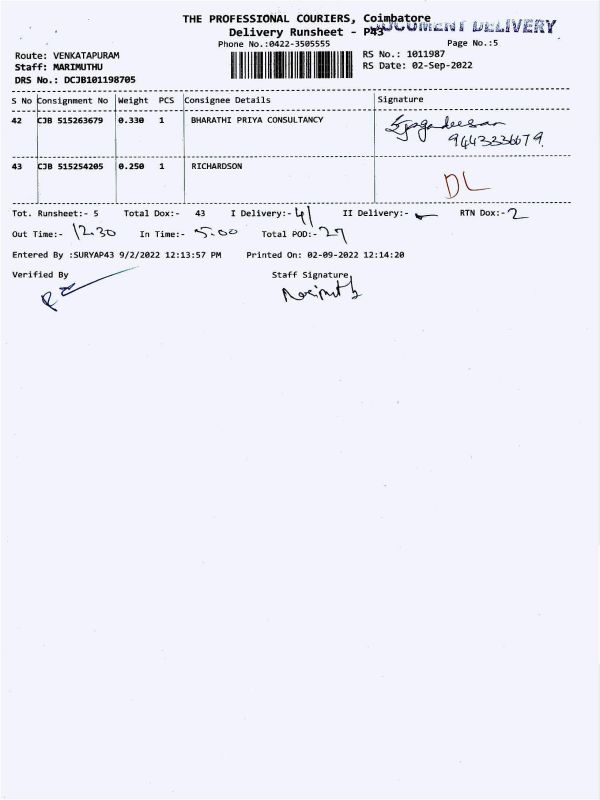 THE PROFESSIONAL COURIERS, Coimbatore
DOCUMENT DELIVERY
Delivery Runsheet - P43
Phone No.:0422-3505555
Page No.:5
Route: VENKATAPURAM
RS No.: 1011987
Staff: MARIMUTHU
RS Date: 02-Sep-2022
DRS No.: DCJB101198705
S No Consignment No Weight PCS Consignee Details Signature
42 CJB 515263679 0.330 1 BHARATHI PRIYA CONSULTANCY
9443336679.
43 CJB 515254205 0.250 1 RICHARDSON
DL
Tot. Runsheet:- 5 Total Dox:- 43 I Delivery:- 41 II Delivery:- RTN Dox:- 2
Out Time:- 12.30 In Time:- 5.00 Total POD:- 27
Entered By :SURYAP43 9/2/2022 12:13:57 PM Printed On: 02-09-2022 12:14:20
Verified By Staff Signature